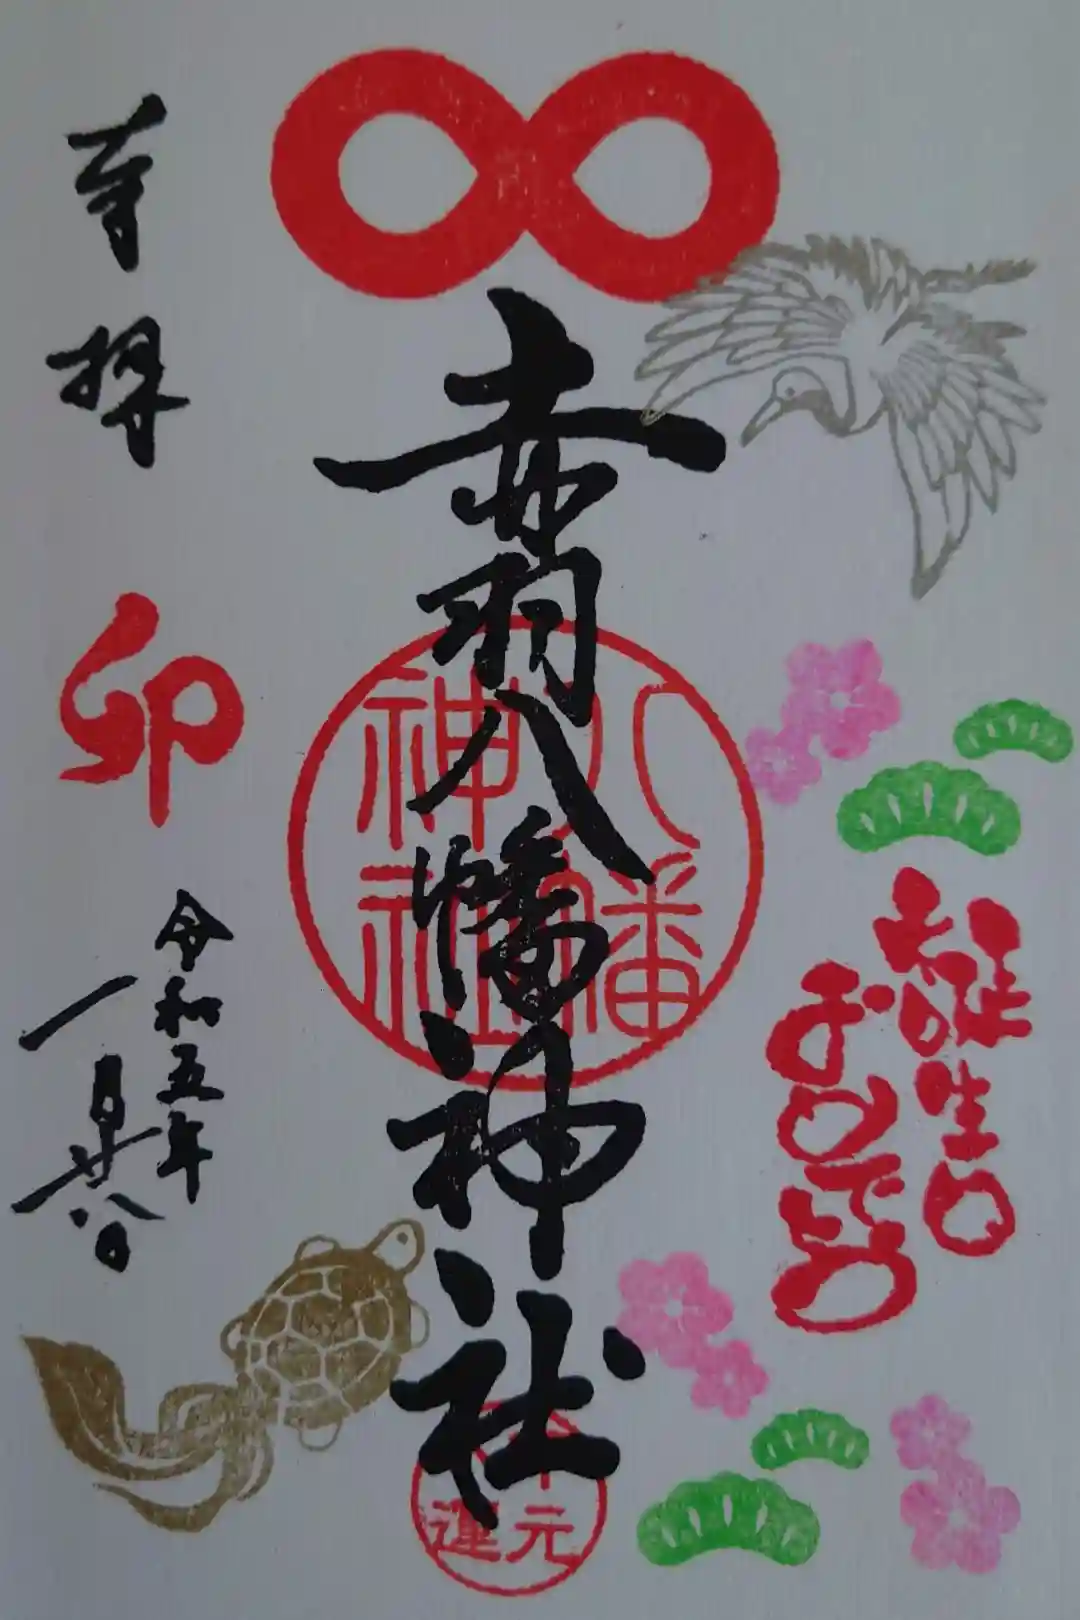 誕生日
おめでとう
赤羽八幡神社
八幡
神社
元
運
奉拝
卯
令和五年
一月廿八日